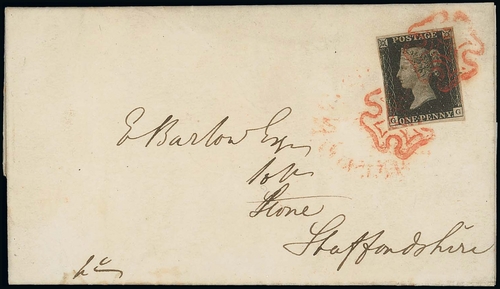 POSTAGE
G G
ONE PENNY
E Barlow Esqr
Stone
Staffordshire